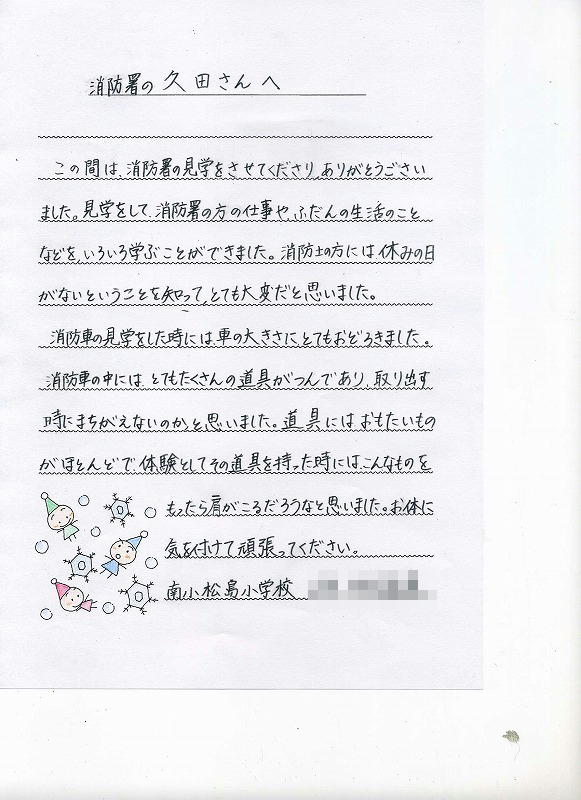 消防署の久田さんへ
この間は、消防署の見学をさせてくださり、ありがとうござい
ました。見学をして、消防署の方の仕事や、ふだんの生活のこと
などを、いろいろ学ぶことができました。消防士の方には休みの日
がないということを知って、とても大変だと思いました。
消防車の見学をした時には、車の大きさに、とてもおどろきました。
消防車の中には、とてもたくさんの道具がつんであり、取り出す
時にまちがえないのか、と思いました。道具にはおもたいもの
がほとんどで、体験としてその道具を持った時には、こんなものを
もったら肩がこるだろうなと思いました。お体に
気を付けて頑張ってください。
南小松島小学校